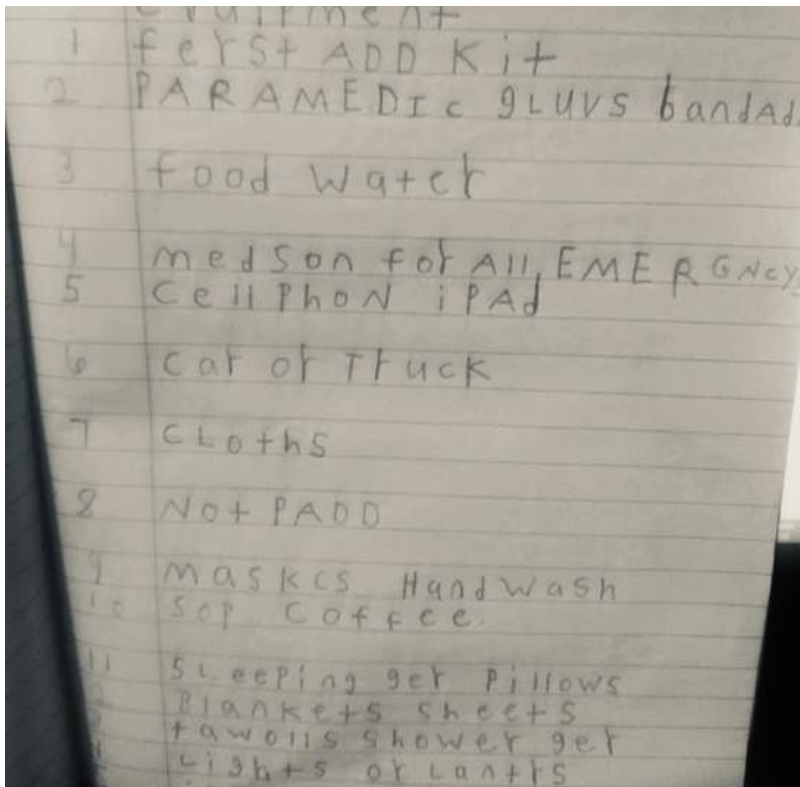 1 ferst ADD Kit
2 PARAMEDIc gLUVS bandAd
3 food water
4 medson for All, EMERGNcy
5 cellPhoN iPAd
6 car or Truck
7 cLoths
8 Not PADD
9 maskcs Handwash
10 sop coffee.
11 sLeePing ger Pillows
Blankets sheets
tawolls shower ger
Lights or Lantrs